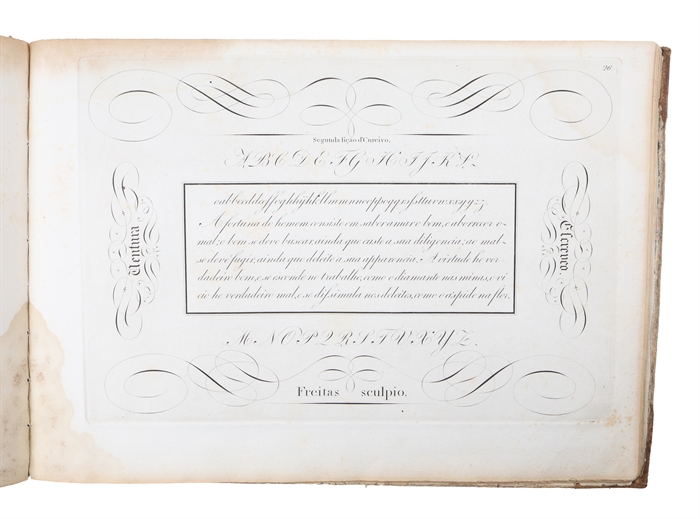 26
Segunda lição d'Cursivo.
A B C D E F G H I J K L
A fortuna do homem consiste em saber amar o bem, e aborrecer o
mal: o bem se deve buscar, ainda que custe a sua diligencia; ao mal
se deve fugir, ainda que deleite a sua apparencia. A virtude he ver-
dadeiro bem, e se esconde no trabalho, como o diamante nas minas, o vi
cio he verdadeiro mal, e se dissimula nos deleites, como o aspide na flor.
Ventura
Escreveo.
M N O P Q R S T V X Y Z
Freitas sculpio.